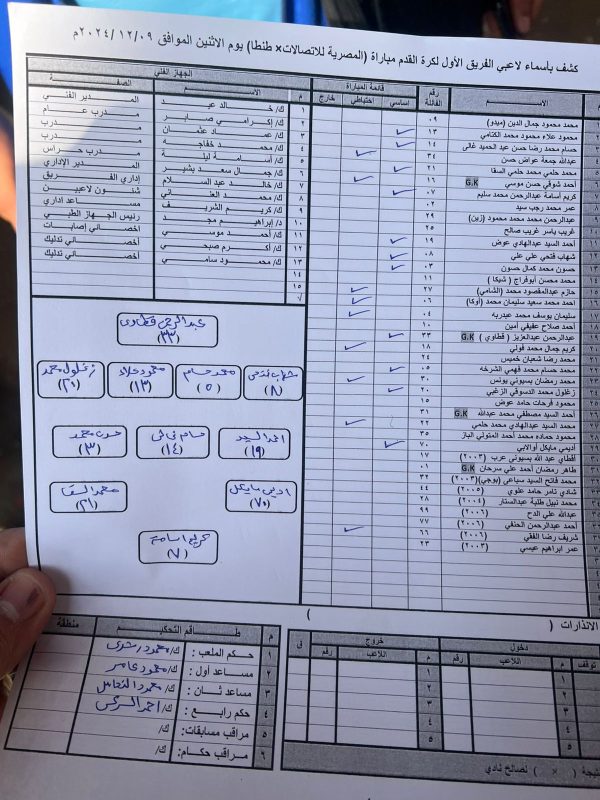 كشف بأسماء لاعبي الفريق الأول لكرة القدم مباراة (المصرية للاتصالات× طنطا) يوم الاثنين الموافق ٢٠٢٤/١٢/٠٩م
م الاســـم رقم الفانلة قائمة المباراة
أساسي احتياطي خارج
محمد محمود جمال الدين (ميدو) ٠٩
محمود علاء محمود محمد الكتامي ١٣
حسام محمد رضا حسن عبد الحميد غالى ١٤
عبدالله جمعة عواض حسن ٣٤
محمد حلمي محمد حلمي السقا ٢١
أحمد شوقي حسن موسي G.K ١٦
كريم أسامة عبدالرحمن محمد سليم ٠٧
عمر محمد رجب سيد ٠٢
عبدالرحمن محمد محمد محمود (زين) ٢٩
غريب ياسر غريب صالح ٢٥
أحمد السيد عبدالهادي عوض ١٩
شهاب فتحي علي علي ٠٨
حسون محمد كمال حسون ٠٣
محمد محسن أبوفراج ( شيكا ) ١١
حازم عبدالمقصود محمد (الشامي) ٢٧
احمد محمد سعيد سليمان محمد (أوكا) ٠٦
سليمان يوسف محمد عبدربه ٠٤
أحمد صلاح عفيفي أمين ١٠
عبدالرحمن عبدالعزيز ( قطاوي ) G.K ٣٣
كريم جمال محمد فولي ١٨
محمد رضا شعبان خميس ٢٤
محمد حسام محمد فهمي الشرخه ٠٥
محمد رمضان بسيوني يونس ٣٠
زغلول محمد الدسوقي الزغبي ٢٠
محمود فرحات حامد عوض ١٥
أحمد السيد مصطفي محمد عبدالله G.K ٣١
محمد السيد عبدالهادي محمد حلمي ٢٢
محمود حماده محمد أحمد المتولي الباز ٣٥
أديمي مايكل أوالابي ٧٠
أقطاي عبد الله بسيوني عرب (٢٠٠٣) ١٧
طاهر رمضان أحمد علي سرحان G.K ٠١
محمد فاتح السيد سباعي (بوجي)(٢٠٠٣) ٣٢
شادي تامر حامد علوي (٢٠٠٥) ٤٤
محمد نبيل طلبة عبدالستار (٢٠٠٤) ٢٨
عبدالله علي الدح (٢٠٠٦) ٩٩
أحمد عبدالرحمن الحنفي (٢٠٠٦) ٧٧
شريف رضا الفقي (٢٠٠٦) ٦٦
عمر ابراهيم عيسي (٢٠٠٣) ٢٣
الجهاز الفني
م الاســـم الصفـــة
١ ك/ خـــالد عيـــد المـدير الفنـي
٢ ك/ إكـرامـي صـابـر مـدرب عـــام
٣ ك/ عمـــاد عثمـــان مـــدرب
٤ ك/ محمـــد خفاجـه مـــدرب
٥ ك/ أســـامة ليلـة مـدرب حـراس
٦ ك/ جمـال سعـد بشيـر المـدير الإداري
٧ ك/ خالد عبد الســلام إداري الفـريق
٨ ك/ محمـد العنـاني شئـون لاعبيـن
٩ ك/ كريـم الشريـف مسـاعد اداري
١٠ د/ إبراهيـم مجـد رئيس الجهاز الطبي
١١ ك/ أحمـد موسـى أخصائي إصابـات
١٢ ك/ أكـرم صبحـي أخصاني تدليك
١٣ ك/ محمـود سامـي أخصاني تدليك
١٤
١٥
عبد الرحمن قطاوى
(٣٣)
شهاب فتحى
(٨)
محمد حسام
(٥)
محمود علاء
(١٣)
زغلول محمد
(٢٠)
احمد السيد
(١٩)
حسام غالى
(١٤)
حسون محمد
(٣)
اديمى مايكل
(٧٠)
محمد السقا
(٢١)
كريم اسامة
(٧)
الانذارات ( )
م طـاقم التحكيـم منطقة
١ حكم الملعب : ك/ محمود رشدى
٢ مساعد أول : ك/ محمود عامر
٣ مساعد ثـان : ك/ محمود
٤ حكم رابـع : ك/ احمد
٥ مراقب مسابقات: ك/
٦ مراقب حكـام: ك/
دخول خروج
توقف م اللاعب رقم م اللاعب رقم ق
١ ١
٢ ٢
٣ ٣
٤ ٤
٥ ٥
نتيجة ( × ) لصالح نادي